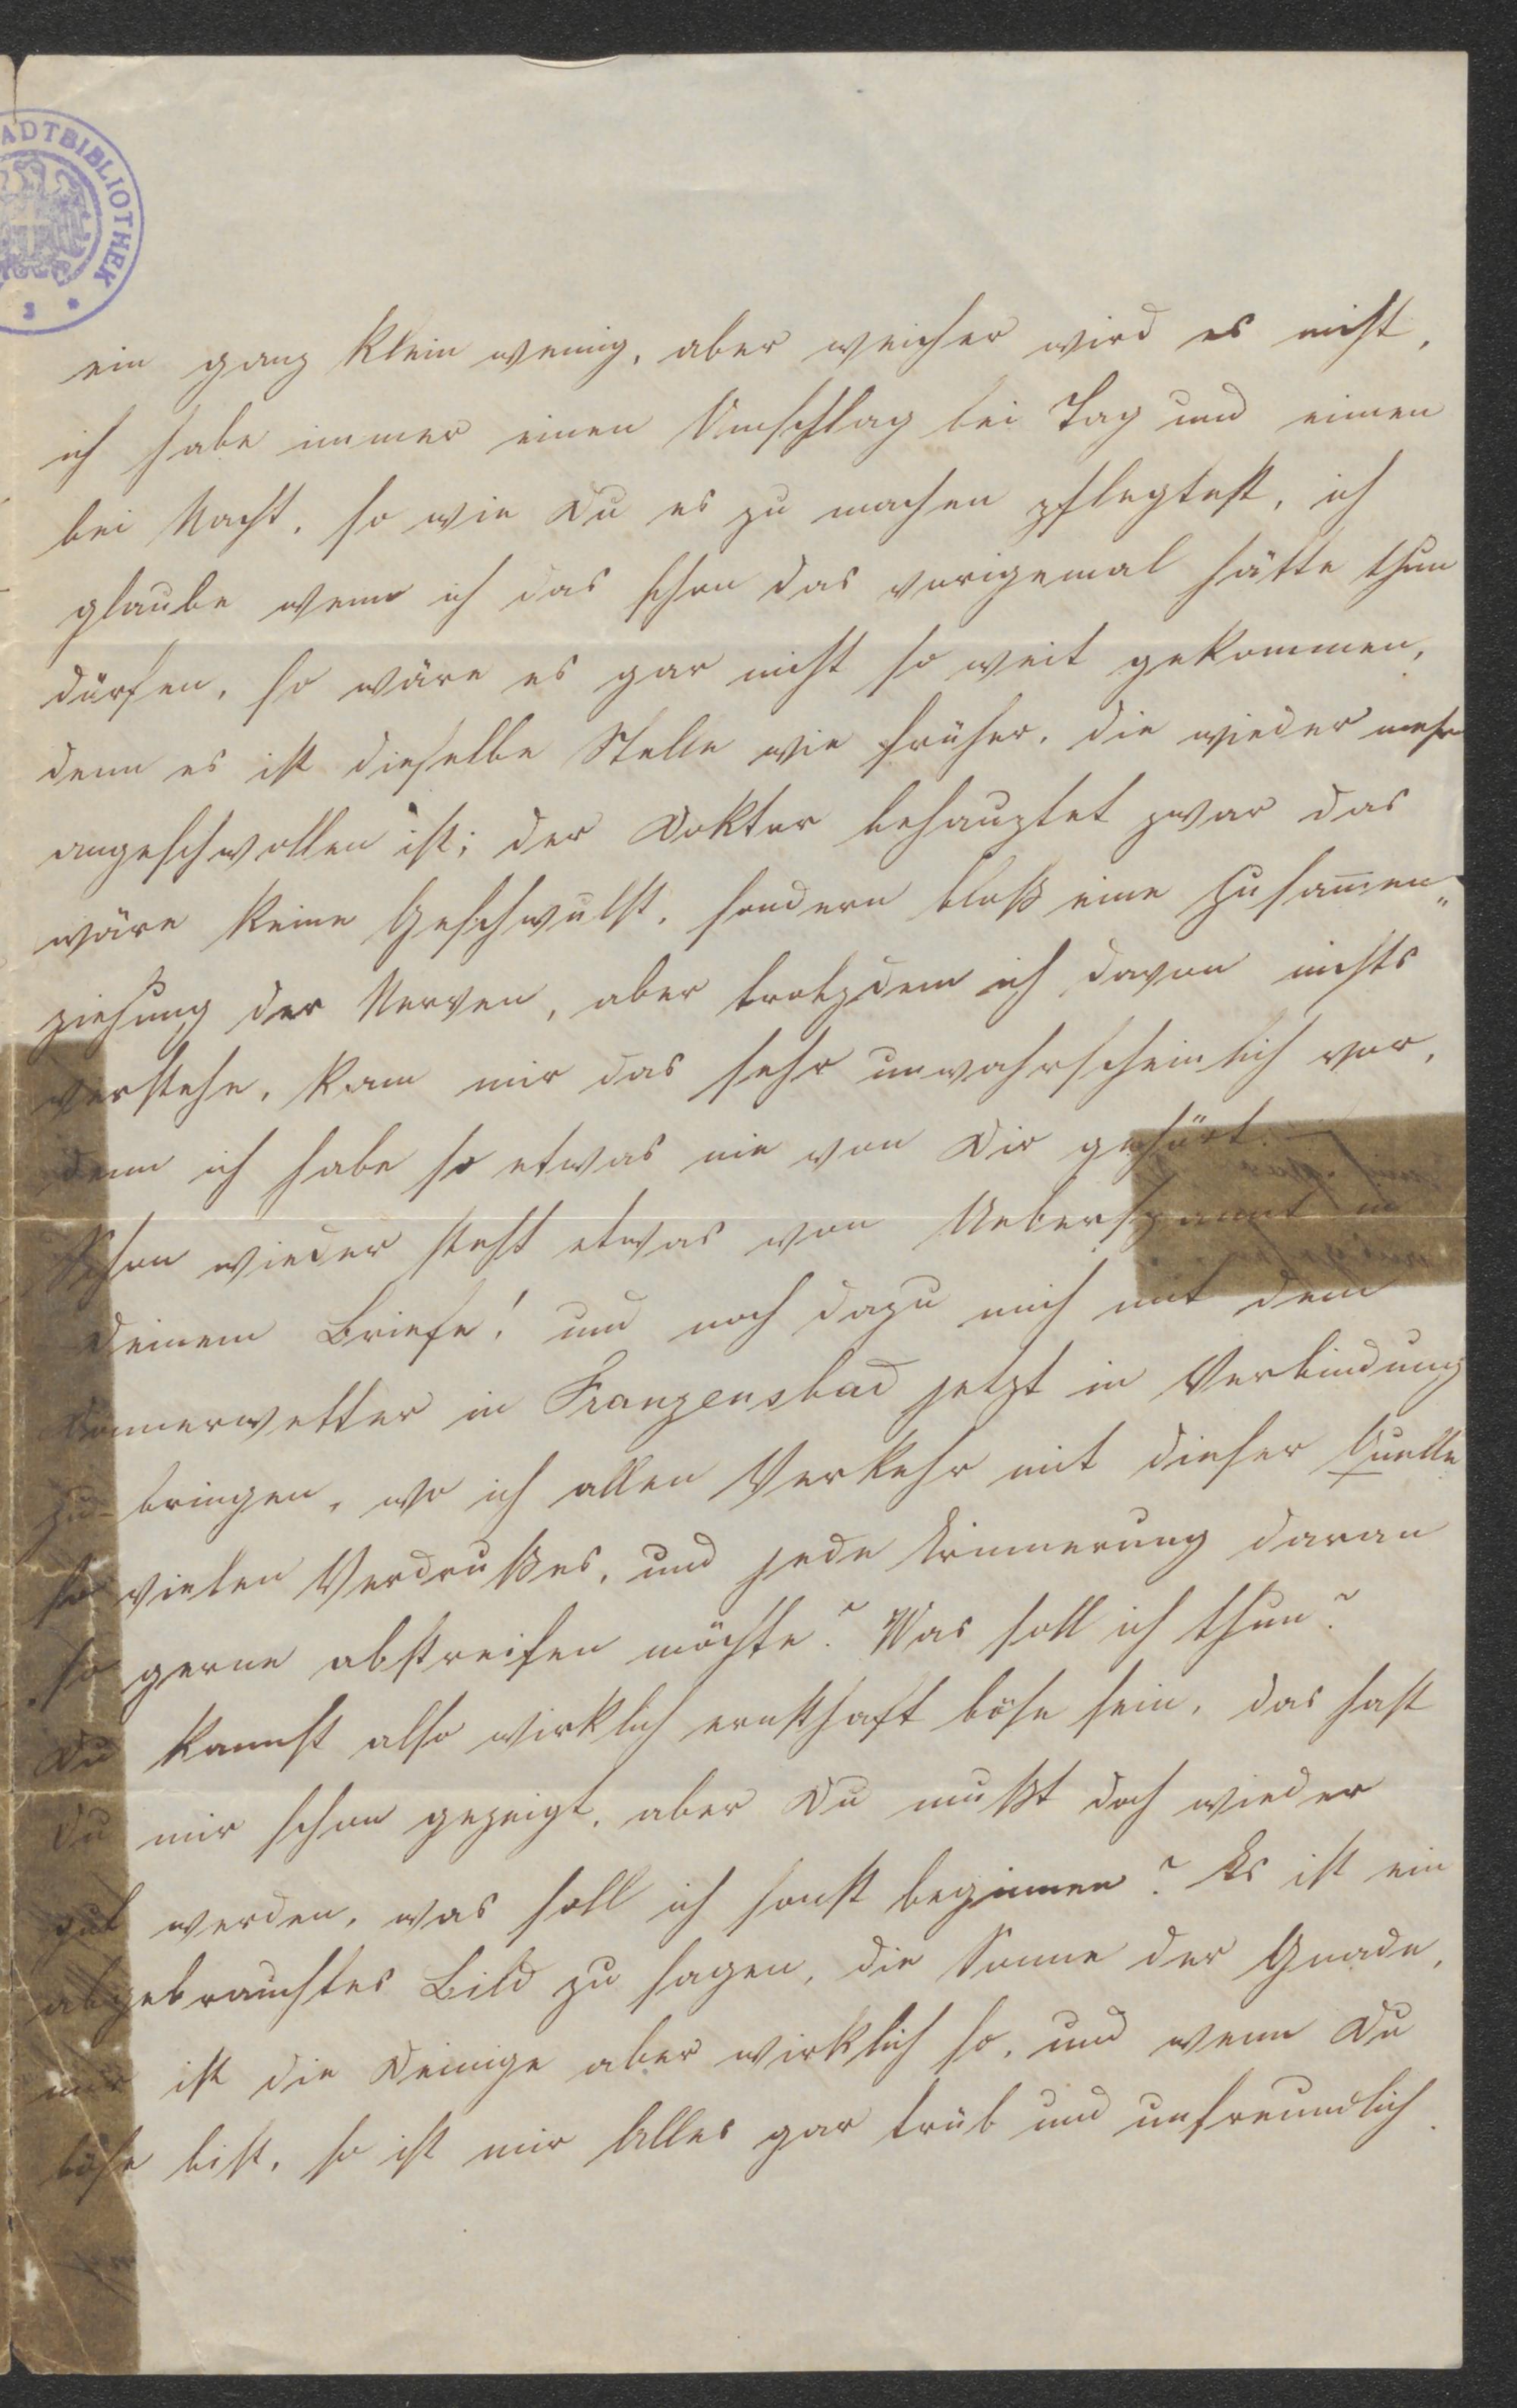 ADTBIBLIOTHEK
ein ganz klein wenig, aber weicher wird es nicht,
ich habe immer einen Umschlag bei Tag und einen
bei Nacht, so wie Du es zu machen pflegtest, ich
glaube wenn ich das schon das vorigemal hätte thun
dürfen, so wäre es gar nicht so weit gekommen,
denn es ist dieselbe Stelle wie früher, die wieder mehr
angeschwollen ist; der Doktor behauptet zwar das
wäre keine Geschwulst, sondern bloß eine Zusam̅en„
ziehung der Nerven, aber trotzdem ich davon nichts
verstehe, kam mir das sehr unwahrscheinlich vor,
denn ich habe so etwas nie von Dir gehört. —
Schon wieder steht etwas von Ueberspannt in
Deinem Briefe! und noch dazu mich mit dem
Donnerwetter in Franzensbad jetzt in Verbindung
zu bringen, wo ich allen Verkehr mit dieser Quelle
so vielen Verdrußes, und jede Erinnerung daran
so gerne abstreifen möchte? Was soll ich thun?
Du kannst also wirklich ernsthaft böse sein, das hast
Du mir schon gezeigt, aber Du mußt doch wieder
gut werden, was soll ich sonst beginnen? Es ist ein
abgebrauchtes Bild zu sagen, die Sonne der Gnade,
mir ist die Deinige aber wirklich so, und wenn Du
böse bist, so ist mir Alles gar trüb und unfreundlich.